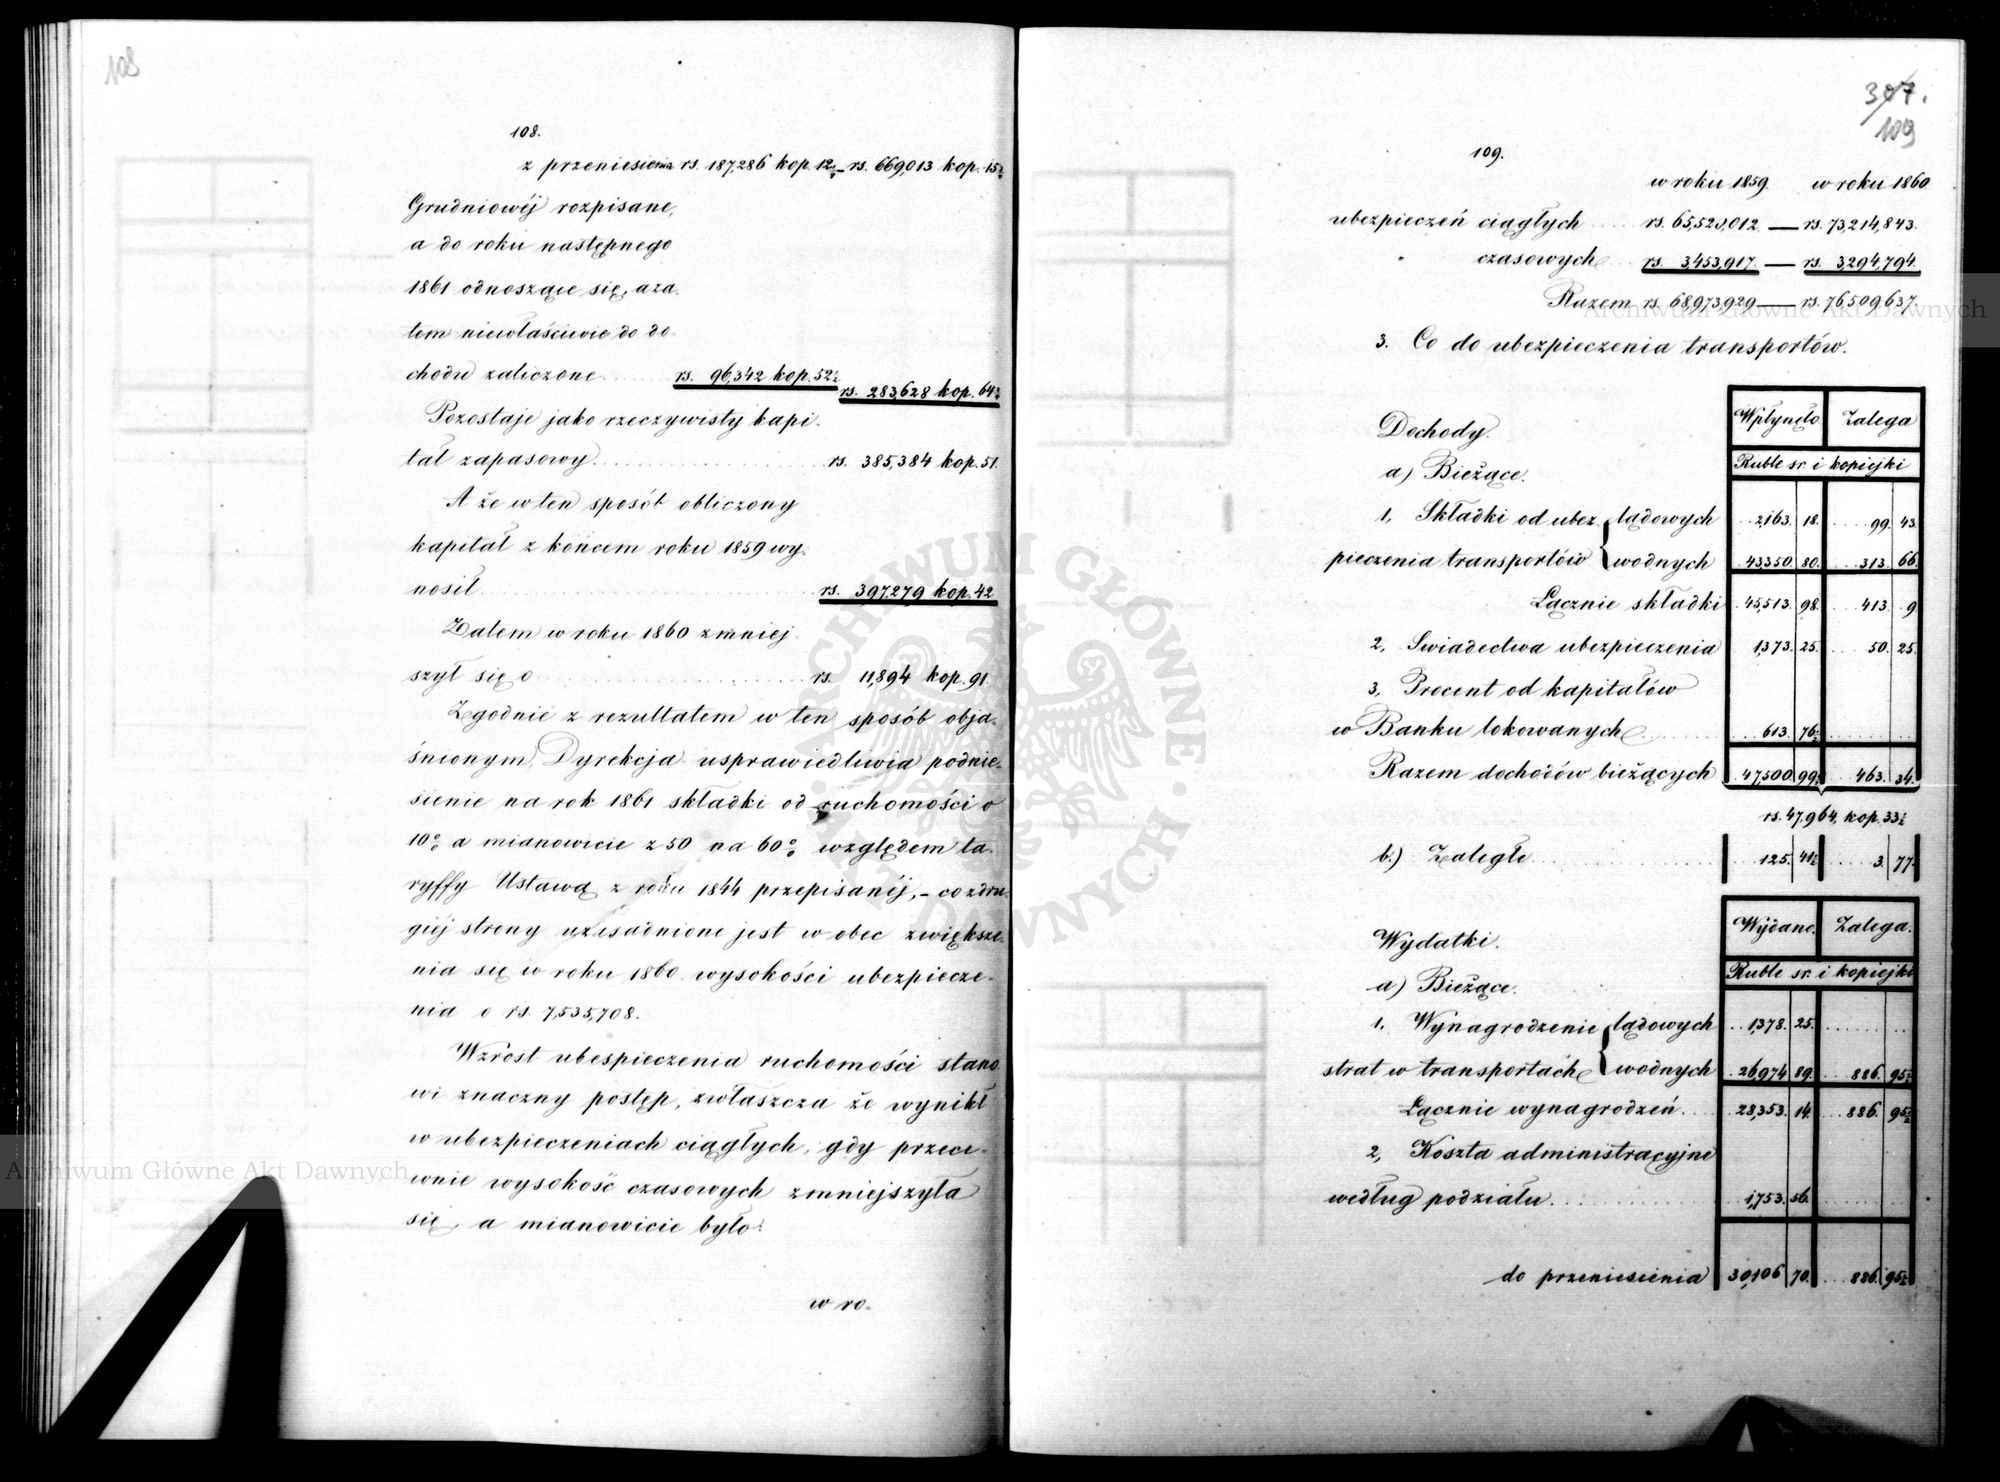 108
108.
z przeniesienia rs. 187,286 kop. 12 – rs. 669,013 kop. 15½
Grudniowéj rozpisane,
a do roku następnego
1861 odnoszące się, aza-
tem niewłaściwie do do-
chodu zaliczone rs. 96,342 kop. 52½
rs. 283,628 kop. 64½
Pozostaje jako rzeczywisty kapi-
tał zapasowy rs. 385,384 kop. 51.
A że w ten sposób obliczony
kapitał z końcem roku 1859 wy-
nosił rs. 397,279 kop. 42
Zatem w roku 1860 zmniej-
szył się o rs. 11,894 kop. 91.
Zgodnie z rezultatem w ten sposób obja-
śnionym, Dyrekcja usprawiedliwia podnie-
sienie na rok 1861 składki od ruchomości o
10% a mianowicie z 50 na 60% względem ta-
ryffy Ustawą z roku 1844 przepisanéj, – co zdru-
giéj strony uzasadnione jest w obec zwiększe-
nia się w roku 1860 wysokości ubezpiecze-
nia o rs. 7,535,708.
Wzrost ubespieczenia ruchomości stano-
wi znaczny postęp, zwłaszcza że wynikł
w ubezpieczeniach ciągłych, gdy przeci-
wnie wysokość czasowych zmniejszyła
się, a mianowicie było:
w ro-
307.
109
109.
w roku 1859. w roku 1860
ubezpieczeń ciągłych rs. 65,520,012. — rs. 73,214,843.
" czasowych rs. 3,453,917. — rs. 3,294,794.
Razem rs. 68,973,929 — rs. 76,509,637.
3. Co do ubezpieczenia transportów.
Wpłynęło Zalega
Dochody.
Ruble sr. i kopiejki
a) Bieżące.
1, Składki od ubez- { lądowych 2163. 18. 99. 43.
pieczenia transportów { wodnych 43350. 80. 313. 66.
Łącznie składki 45,513. 98. 413. 9
2, Swiadectwa ubezpieczenia 1,373. 25. 50. 25.
3, Procent od kapitałów
w Banku lokowanych 613. 76½
Razem dochodów bieżących 47,500 99½ 463. 34.
rs. 47,964, kop. 33½
b.) Zaległe 125. 41½ 3. 77
Wydano. Zalega.
Wydatki.
Ruble sr. i kopiejki
a) Bieżące.
1. Wynagrodzenie { lądowych 1,378. 25.
strat w transportach { wodnych 26,974 89. 886. 95½
Łącznie wynagrodzeń. 28,353. 14. 886. 95½
2, Koszta administracyjne
według podziału. 1,753. 56.
do przeniesienia 30,106 70. 886. 95½
Archiwum Główne Akt Dawnych
Archiwum Główne Akt Dawnych
ARCHIWUM GŁÓWNE AKT DAWNYCH